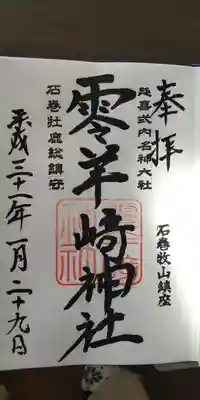 奉拝
石巻牧山鎮座
延喜式内名神大社
零羊崎神社
石巻牡鹿総鎮守
平成三十一年一月二十九日